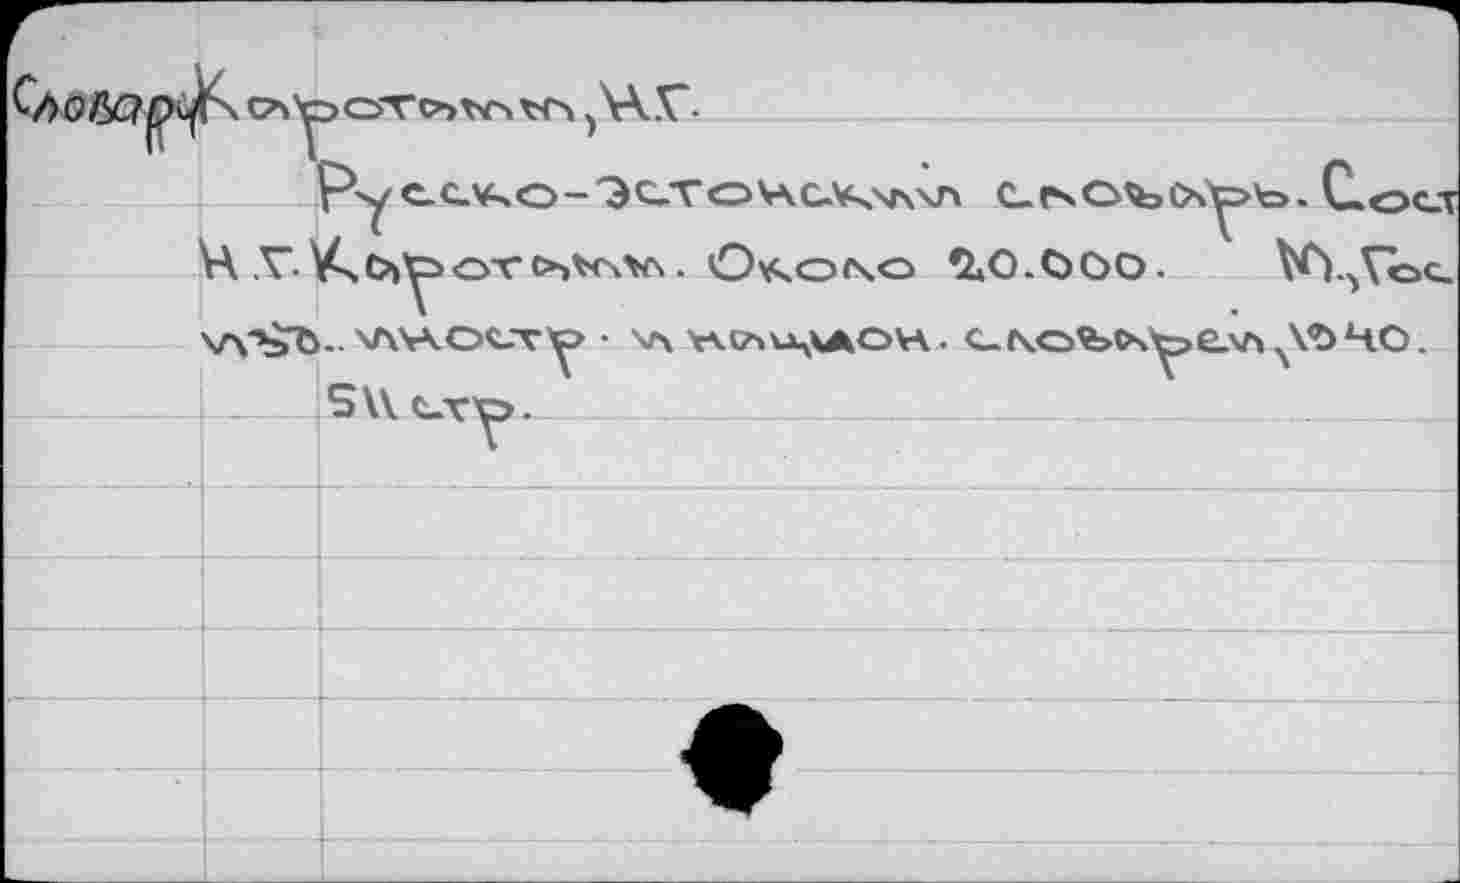 Словари Каротамм, Н.Г.
Русско-Эстонский словарь. Сост
Н.Г. Каротамм. Около 20.000. М., Гос.
изд. иностр. и национ. словарей, 1940.
511 стр.